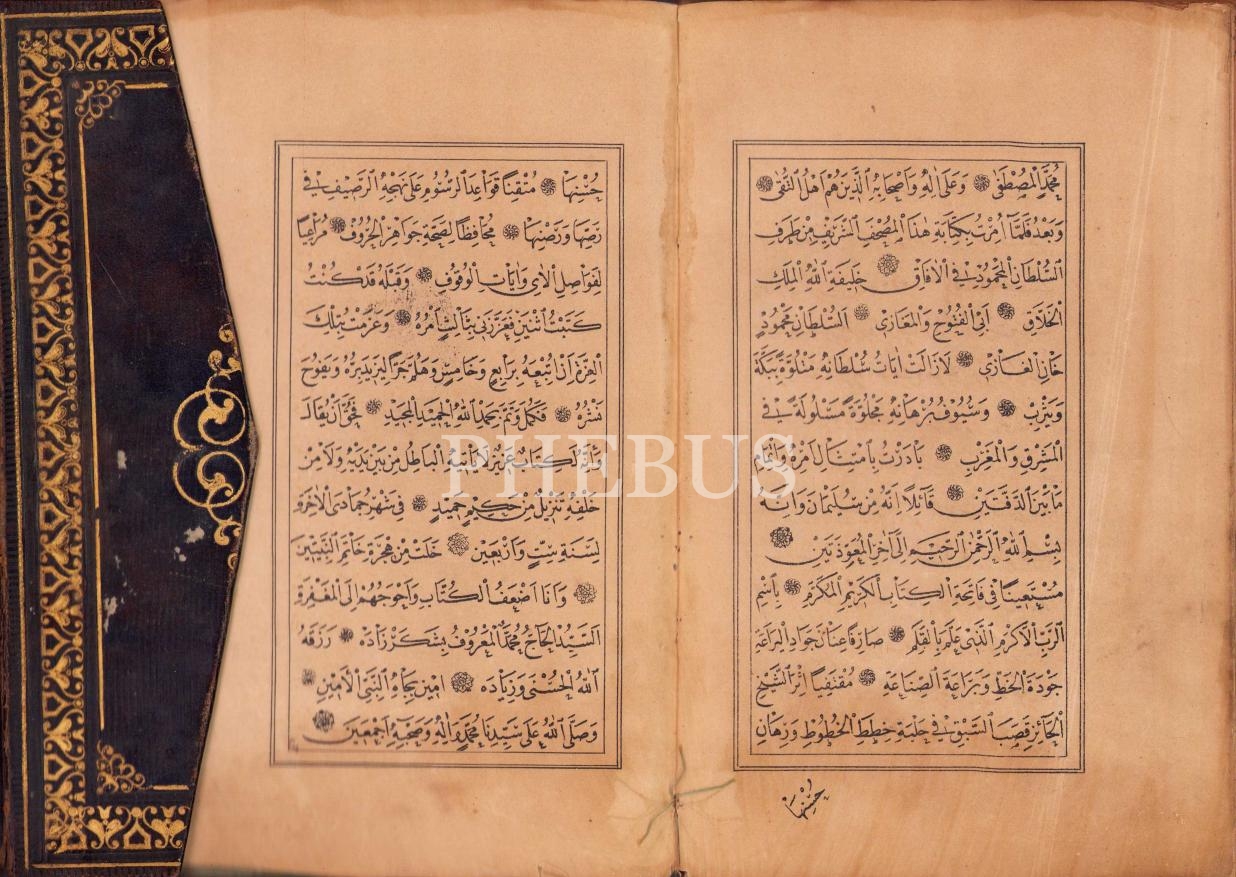 محمد المصطفى وعلى اله واصحابه الذين هم اهل التقى
وبعد فلما امرت بكتابة هذا المصحف الشريف من طرف
السلطان المحمود في الافاق خليفة الله الملك
الخلاق ابي الفتوح والمغازي السلطان محمود
خان الغازي لازالت ايات سلطانه متلوة ببكة
ويثرب وسيوف برهانه مجلوة مسلولة في
المشرق والمغرب بادرت بامتثال امره واتمام
ما بين الدفتين قائلا انه من سليمان وانه
بسم الله الرحمن الرحيم الى اخر المعوذتين
مستعينا في فاتحة الكتاب الكريم المكرم باسم
الرب الاكرم الذي علم بالقلم صارفا عنان جواد اليراعة
جودة الخط وبراعة الصناعة مقتفيا اثر الشيخ
الحائز قصب السبق في حلبة خطط الخطوط ورهان
حسنها
حسنها متقنا قواعد الرسوم على نهجه الرصيف في
رصها ورصنها محافظا لصحة جواهر الحروف مراعيا
لفواصل الاي وايات الوقوف وقبله قد كنت
كتبت اثنين فعززني بثالث امره وعزمت بتلك
العزم ان اتبعه برابع وخامس وهلم جرا ليزيد بره ويفوح
نشره فكمل وتم بحمد الله الحميد المجيد فحق ان يقال
وانه لكتاب عزيز لا ياتيه الباطل من بين يديه ولا من
خلفه تنزيل من حكيم حميد في شهر جمادى الاخرة
لسنة ست واربعين خلت من هجرة خاتم النبيين
وانا اضعف الكتاب واحوجهم الى المغفرة
السيد الحاج محمد المعروف بشكرزاده رزقه
الله الحسنى وزياده امين بجاه النبي الامين
وصلى الله على سيدنا محمد واله وصحبه اجمعين
PHEBUS